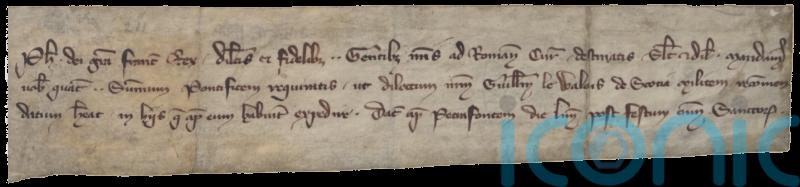 Ph. dei gra francꝝ Rex dilcis et fidelibꝫ .. Gentibꝫ nris ad Romanā Cur destinatis Salt & dil. Mandam9
uob quatꝰ .. Summum Pontificem requiratis ut dilectum nrm Guillm le Walois de Scotia militem recomen
datum heat in hiis q̄ apd eum habuerit expedire. Dat apd Petrifontem die lun̄ post festum om̄ Sanctorꝝ.
iconic